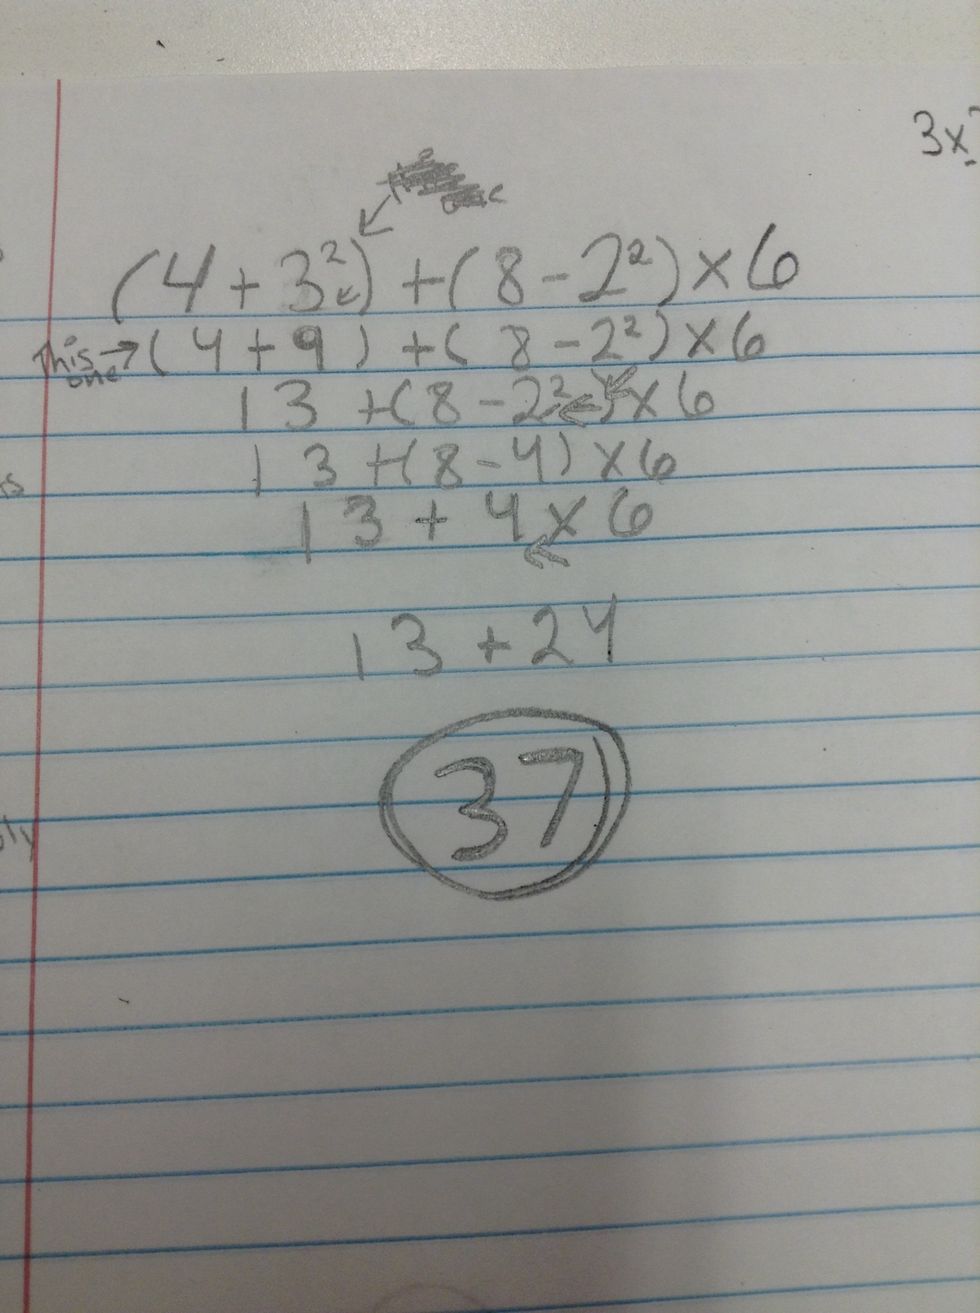 3x
(4 + 3²) + (8 - 2²) × 6
This one → (4 + 9) + (8 - 2²) × 6
13 + (8 - 2²) × 6
13 + (8 - 4) × 6
13 + 4 × 6
13 + 24
37